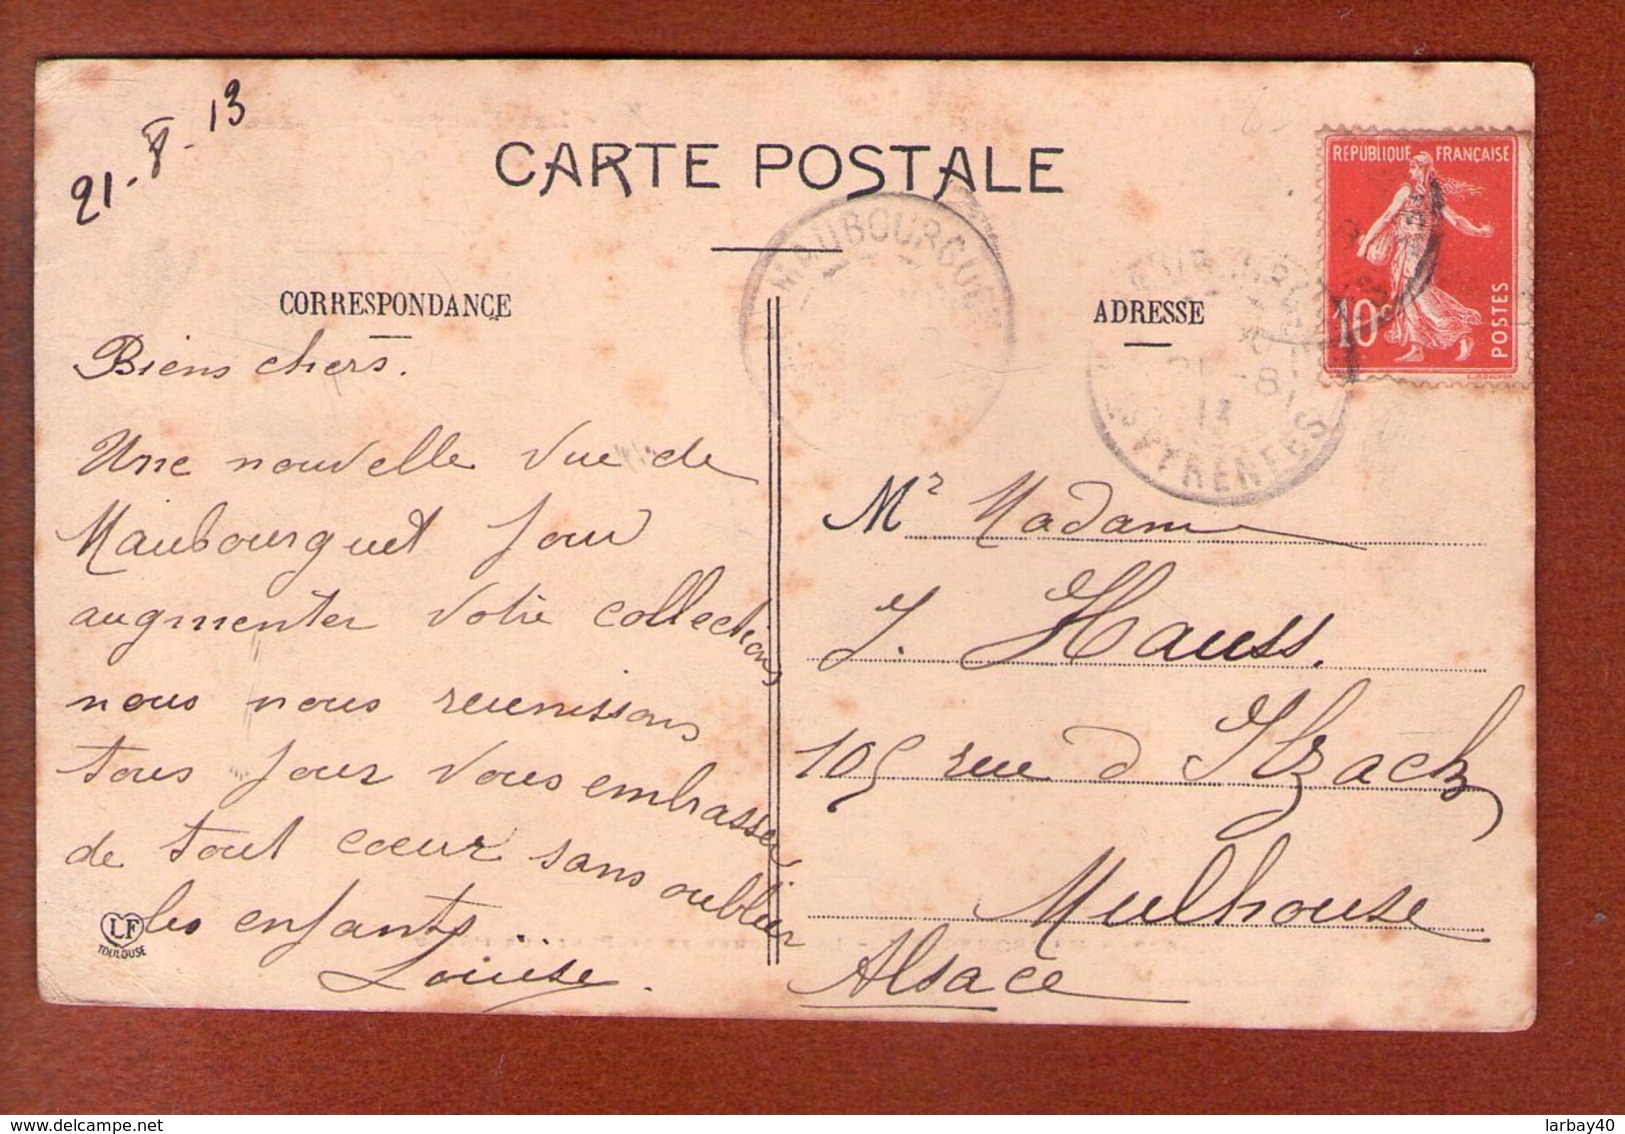 21-8-13
CARTE POSTALE
CORRESPONDANCE
Biens chers.
Une nouvelle vue de
Maubourguet pour
augmenter votre collection,
nous nous reunissons
tous pour vous embrasser
de tout cœur sans oublier
les enfants...
Louise.
LF
TOULOUSE
MAUBOURGUET
ADRESSE
REPUBLIQUE FRANÇAISE
10c
POSTES
21 -8
13
PYRENEES
Mr Madame
J. Hauss.
105 rue d Illzach
Mulhouse
Alsace
delcampe.net
larbay40